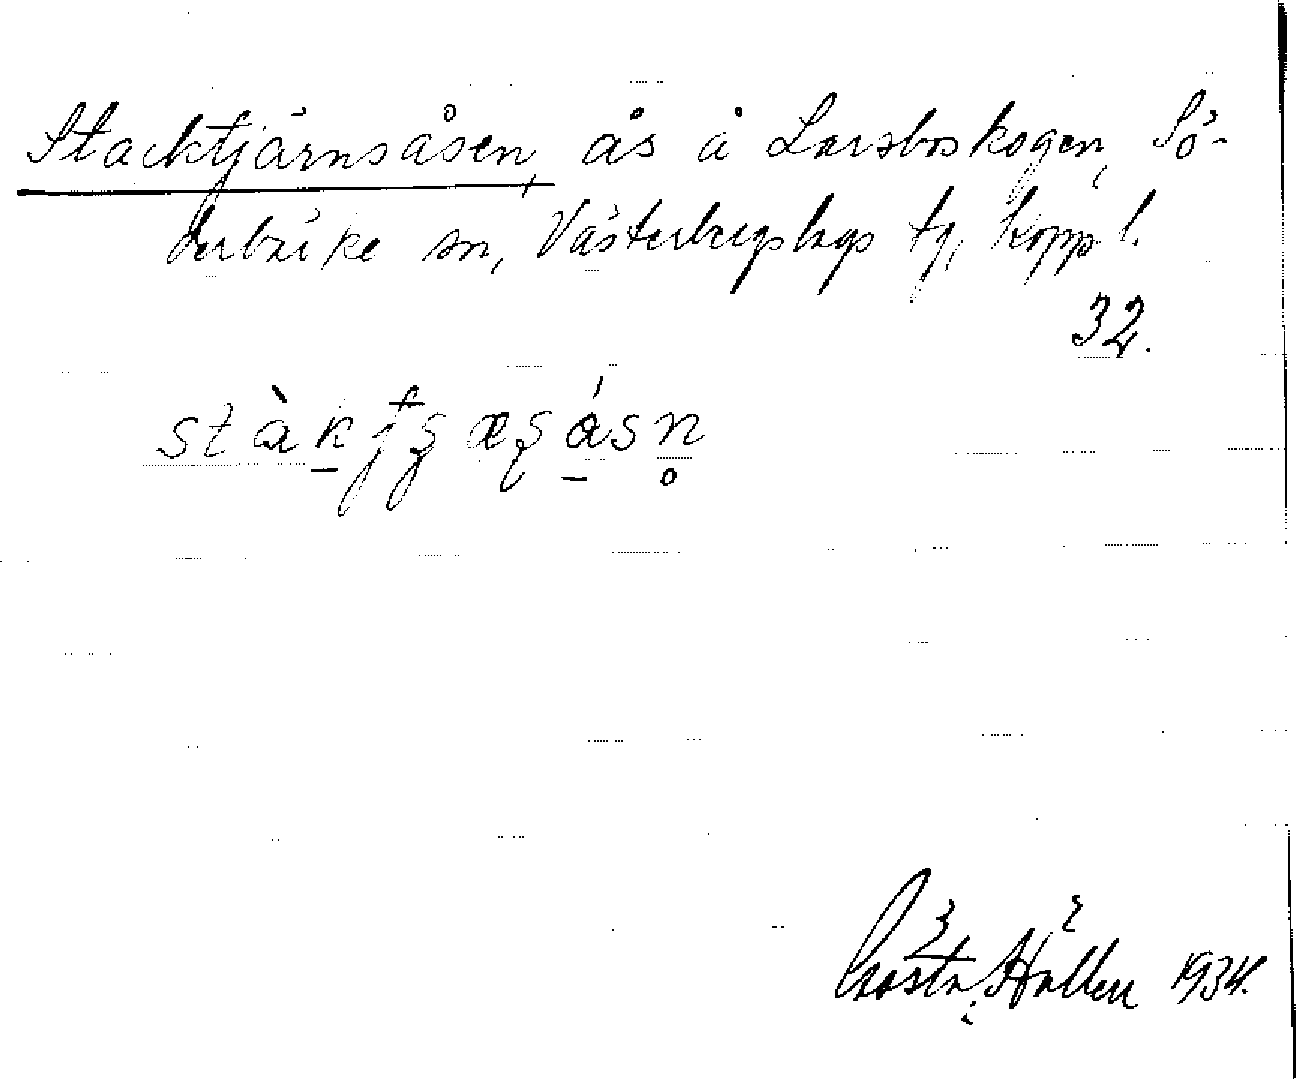 Stacktjärnsåsen, ås å Larsboskogen, Sö-
derbärke sn, Västerbergslags tg, Kopp. l.
32.
Gösta Hallén 1934.